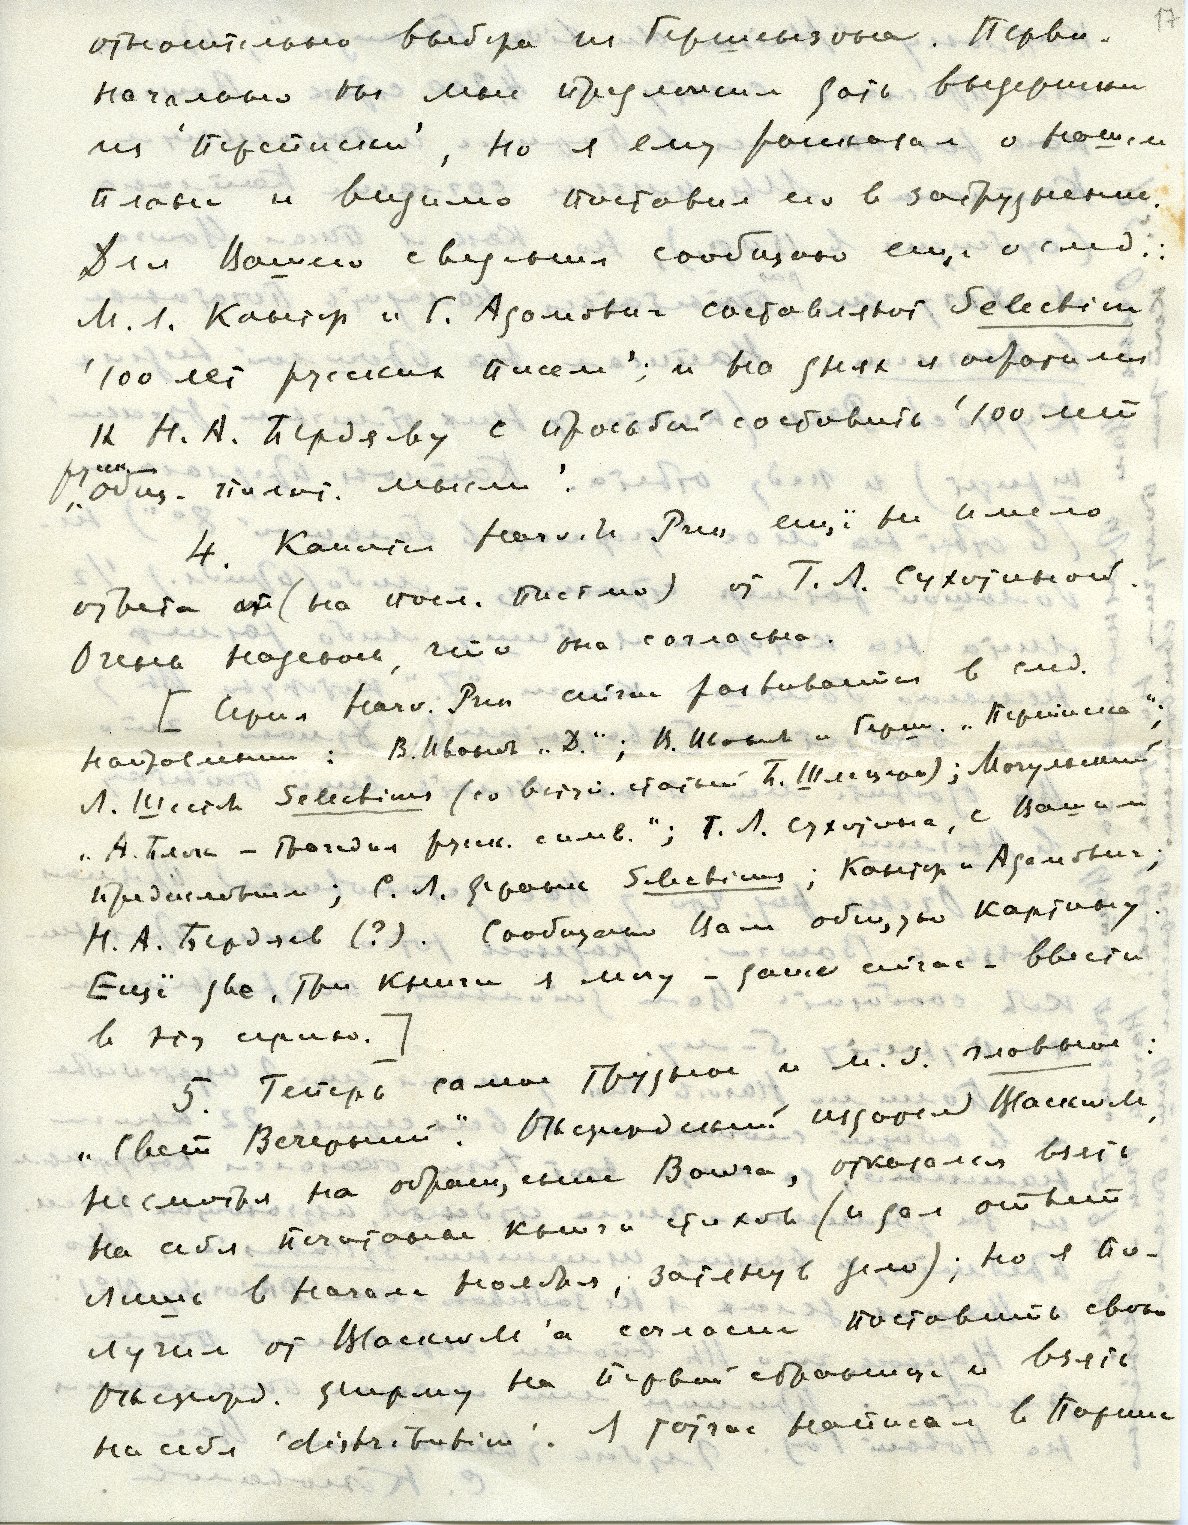 17
относительно выбора из Гершензона. Перво-
начально он мне предложил дать выдержки
из 'Переписки', но я ему рассказал о нашем
плане и видимо поставил его в затруднение.
Для Вашего сведения сообщаю ещё о след.:
М. Л. Кантор и Г. Адамович составляют Selection
'100 лет русских писем'; и на днях я обратился
к Н. А. Бердяеву с просьбой составить '100 лет
русск. общ.- полит. мысли'.
4. Harvill Press ещё не имело
ответа (на посл. письмо) от Т. Л. Сухотиной.
Очень надеюсь, что она согласна.
[ Серия Harv. Press сейчас развивается в след.
направлении: В. Иванов „Д."; В. Иванов и Герш. „Переписка";
Л. Шестов Selections (со вступ. статьей Б. Шлецера); Мочульский
„А. Блок – трагедия русск. симв."; Т. Л. Сухотина, с Вашим
предисловием; С. Л. Франк Selections; Кантор и Адамович;
Н. А. Бердяев (?). Сообщаю Вам общую картину.
Ещё две, три книги я могу – даже сейчас – ввести
в эту серию. ]
5. Теперь самое трудное и м. б. главное:
„Свет Вечерний". Оксфордский издатель Blackwell,
несмотря на обращение Вошга, отказался взять
на себя печатание книги стихов (и дал ответ
лишь в начале ноября, затянув дело); но я по-
лучил от Blackwell'а согласие поставить свою
Оксфорд. фирму на первой странице и взять
на себя 'distribution'. Я тотчас написал в Париж